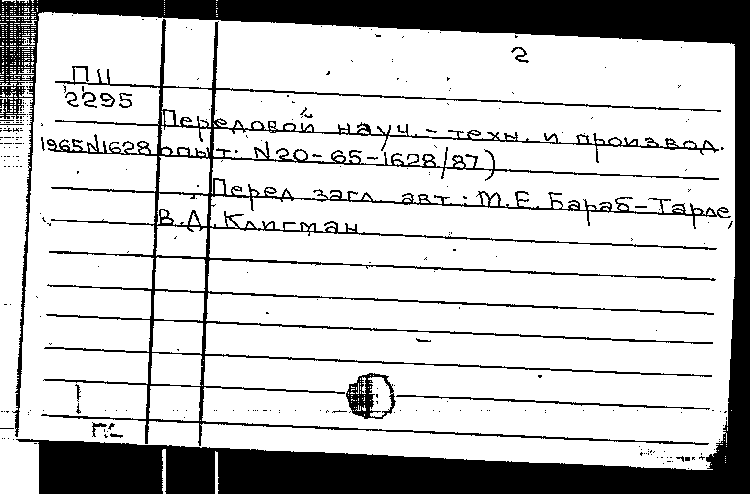 2
П11
2295
Передовой науч.-техн. и производ.
1965N1628 опыт: N20-65-1628/87)
Перед загл. авт.: М.Е. Бараб-Тарле,
В.Д. Клигман
ПС